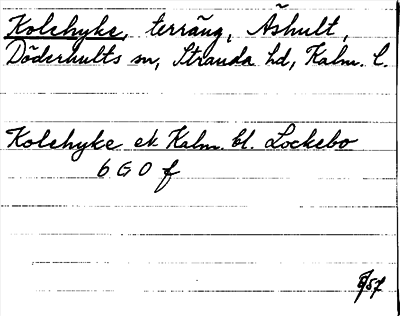 Kolehyke, terräng, Åshult,
Döderhults sn, Stranda hd, Kalm. l.
Kolehyke ek Kalm. bl. Lockebo
6 G 0 f